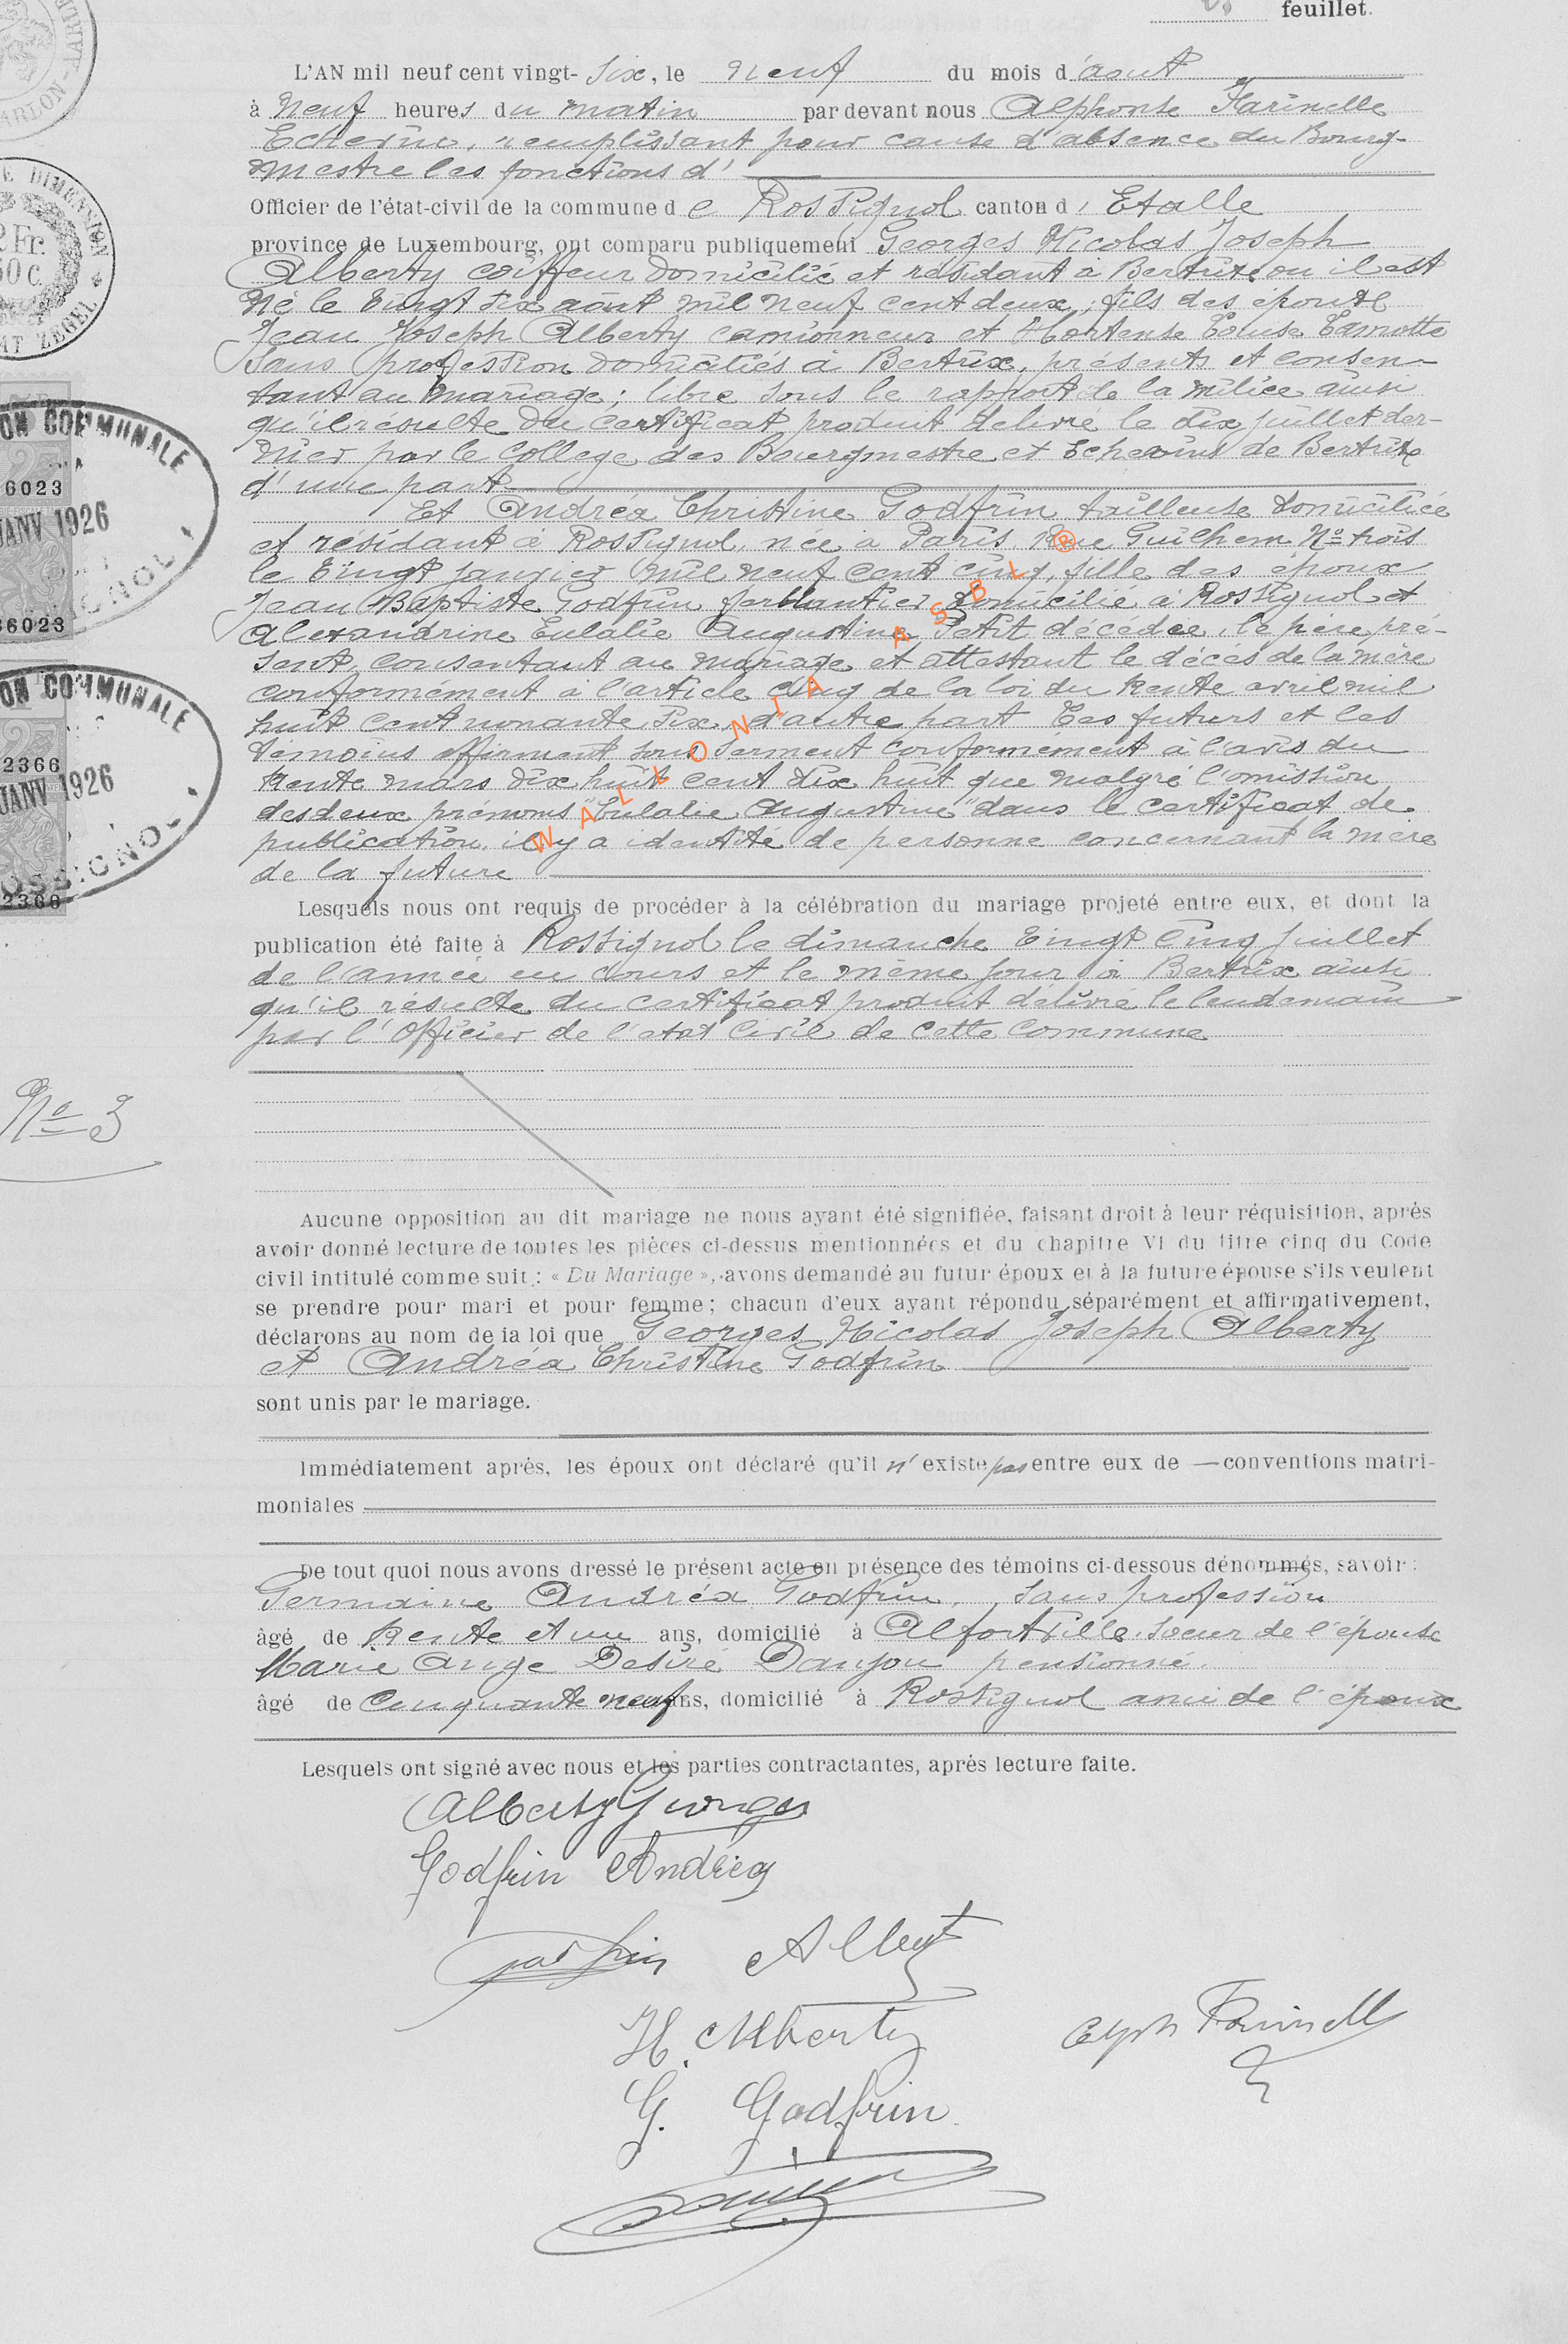 feuillet.
L'AN mil neuf cent vingt- six, le neuf du mois d'août
à neuf heures du matin par devant nous Alphonse Farinelle
Echevin, remplissant pour cause d'absence du Bourg-
mestre les fonctions d'
Officier de l'état-civil de la commune de Rossignol canton d' Etalle
province de Luxembourg, ont comparu publiquement Georges Nicolas Joseph
Alberty coiffeur domicilié et résidant à Bertrix où il est
né le vingt six août mil neuf cent deux, fils des époux
Jean Joseph Alberty camionneur et Hortense Louise Lamotte
sans profession domiciliés à Bertrix, présents et consen-
tant au mariage; libre sous le rapport de la milice ainsi
qu'il résulte du certificat produit délivré le dix juillet der-
nier par le College des Bourgmestre et Echevins de Bertrix
d'une part
Et Andréa Christine Godfrin tailleuse domiciliée
et résidant à Rossignol, née à Paris, Rue Guilhem No trois
le vingt janvier mil neuf cent cinq, fille des époux
Jean Baptiste Godfrin ferblantier domicilié à Rossignol et
Alexandrine Eulalie Augustine Petit décédée, le père pré-
sent, consentant au mariage et attestant le décès de la mère
conformément à l'article cinq de la loi du trente avril mil
huit cent nonante six, d'autre part Les futurs et les
témoins affirment sous serment conformément à l'avis du
trente mars dix huit cent dix huit que malgré l'omission
des deux prénoms "Eulalie Augustine" dans le certificat de
publication, il y a identité de personne concernant la mère
de la future
WALLONIA ASBL ®
Lesquels nous ont requis de procéder à la célébration du mariage projeté entre eux, et dont la
publication été faite à Rossignol le dimanche vingt cinq juillet
de l'année en cours et le même jour à Bertrix ainsi
qu'il résulte du certificat produit délivré le lendemain
par l'Officier de l'état civil de cette commune
No 3
Aucune opposition au dit mariage ne nous ayant été signifiée, faisant droit à leur réquisition, après
avoir donné lecture de toutes les pièces ci-dessus mentionnées et du chapitre VI du titre cinq du Code
civil intitulé comme suit : « Du Mariage », avons demandé au futur époux et à la future épouse s'ils veulent
se prendre pour mari et pour femme ; chacun d'eux ayant répondu séparément et affirmativement,
déclarons au nom de la loi que Georges Nicolas Joseph Alberty
et Andréa Christine Godfrin
sont unis par le mariage.
Immédiatement après, les époux ont déclaré qu'il n'existe pas entre eux de — conventions matri-
moniales
De tout quoi nous avons dressé le présent acte en présence des témoins ci-dessous dénommés, savoir :
Germaine Andréa Godfrin, sans profession
âgé de trente et un ans, domicilié à Alfortville soeur de l'épouse
Marie Ange Désiré Danjou pensionné,
âgé de cinquante neuf ans, domicilié à Rossignol ami de l'époux
Lesquels ont signé avec nous et les parties contractantes, après lecture faite.
Alberty Georges
Godfrin Andréa
Godfrin Alberty
H. Alberty Alph Farinelle
G. Godfrin
DIMENSION
2 Fr.
50 c.
ARLON
COMMUNALE
6023
JANV 1926
36023
COMMUNALE
2366
JANV 1926
OSSIGNOL
2366